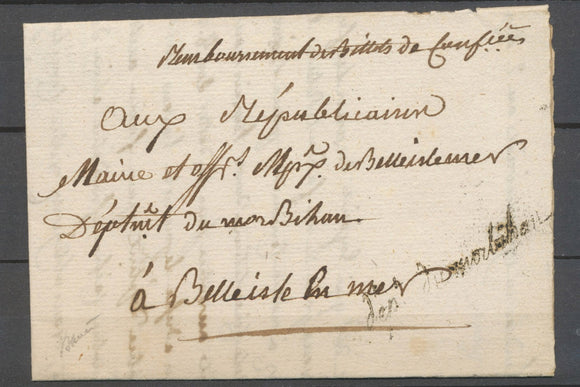 Remboursement de Billets de Confiée
aux Républicains
Maire et offrs. Mpx. de Belleislemer
Déptmt du morBihan
à Belleisle En mer
dep. du morbihan